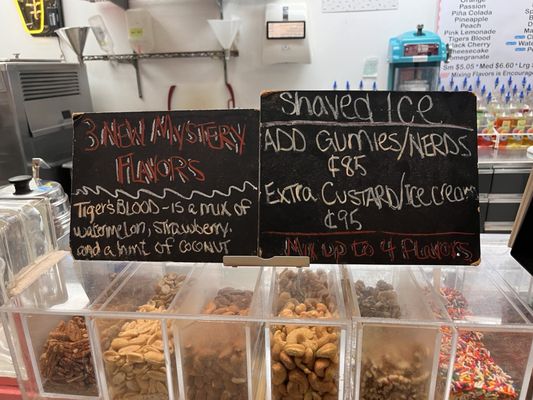 Orange
Passion
Pineapple
Peach
Pink Lemonade
Tigers Blood
Black Cherry
Cheesecake
Pomegranate
Sm $5.05 Med $6.60
Mixing Flavors is Encouraged
3 New Mystery
Flavors
Tiger's Blood - is a mix of
watermelon, strawberry,
and a hint of coconut
Shaved Ice
Add Gummies/Nerds
¢85
Extra Custard/Ice cream
¢95
Mix up to 4 Flavors